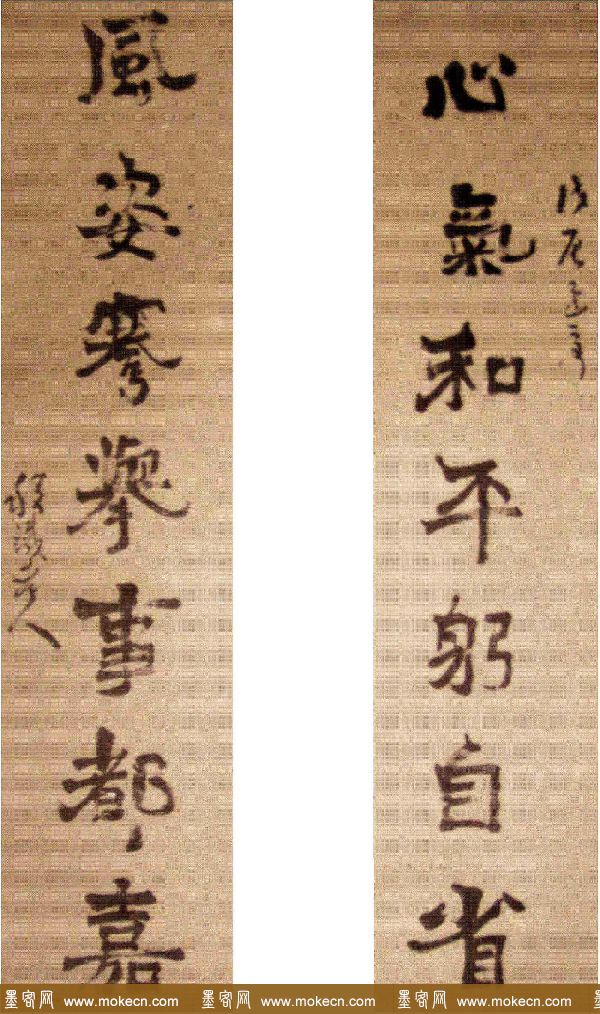 心氣和平躬自省
風姿騫舉事都嘉
墨客网 www.mokecn.com 墨客网 www.mokecn.com 墨客网 www.mokecn.com